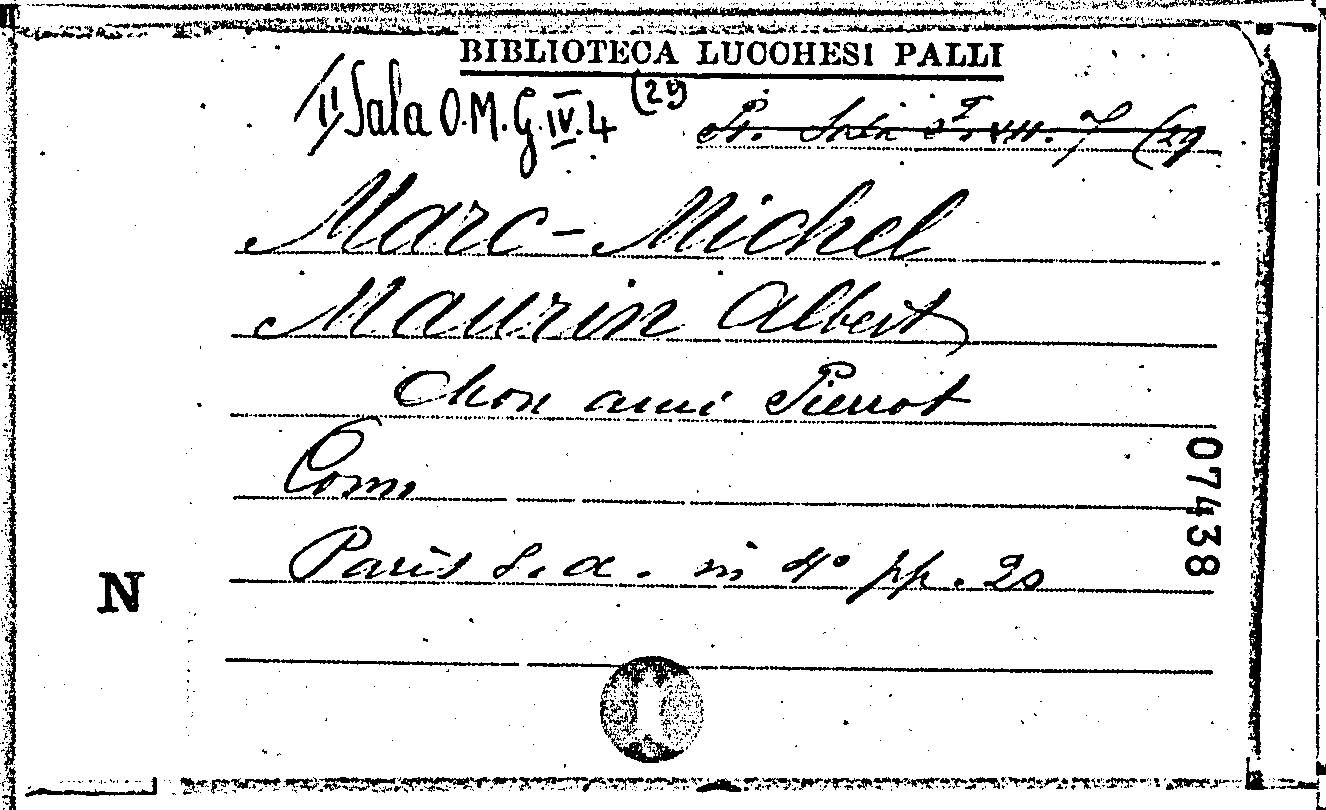 BIBLIOTECA LUCCHESI PALLI
II Sala O.M.G.IV.4 (29
Sala F. VII. 7 (29
Marc-Michel
Maurin Albert
Mon ami Pierrot
Com
Paris s.a. in 4° pp. 20
07438
N